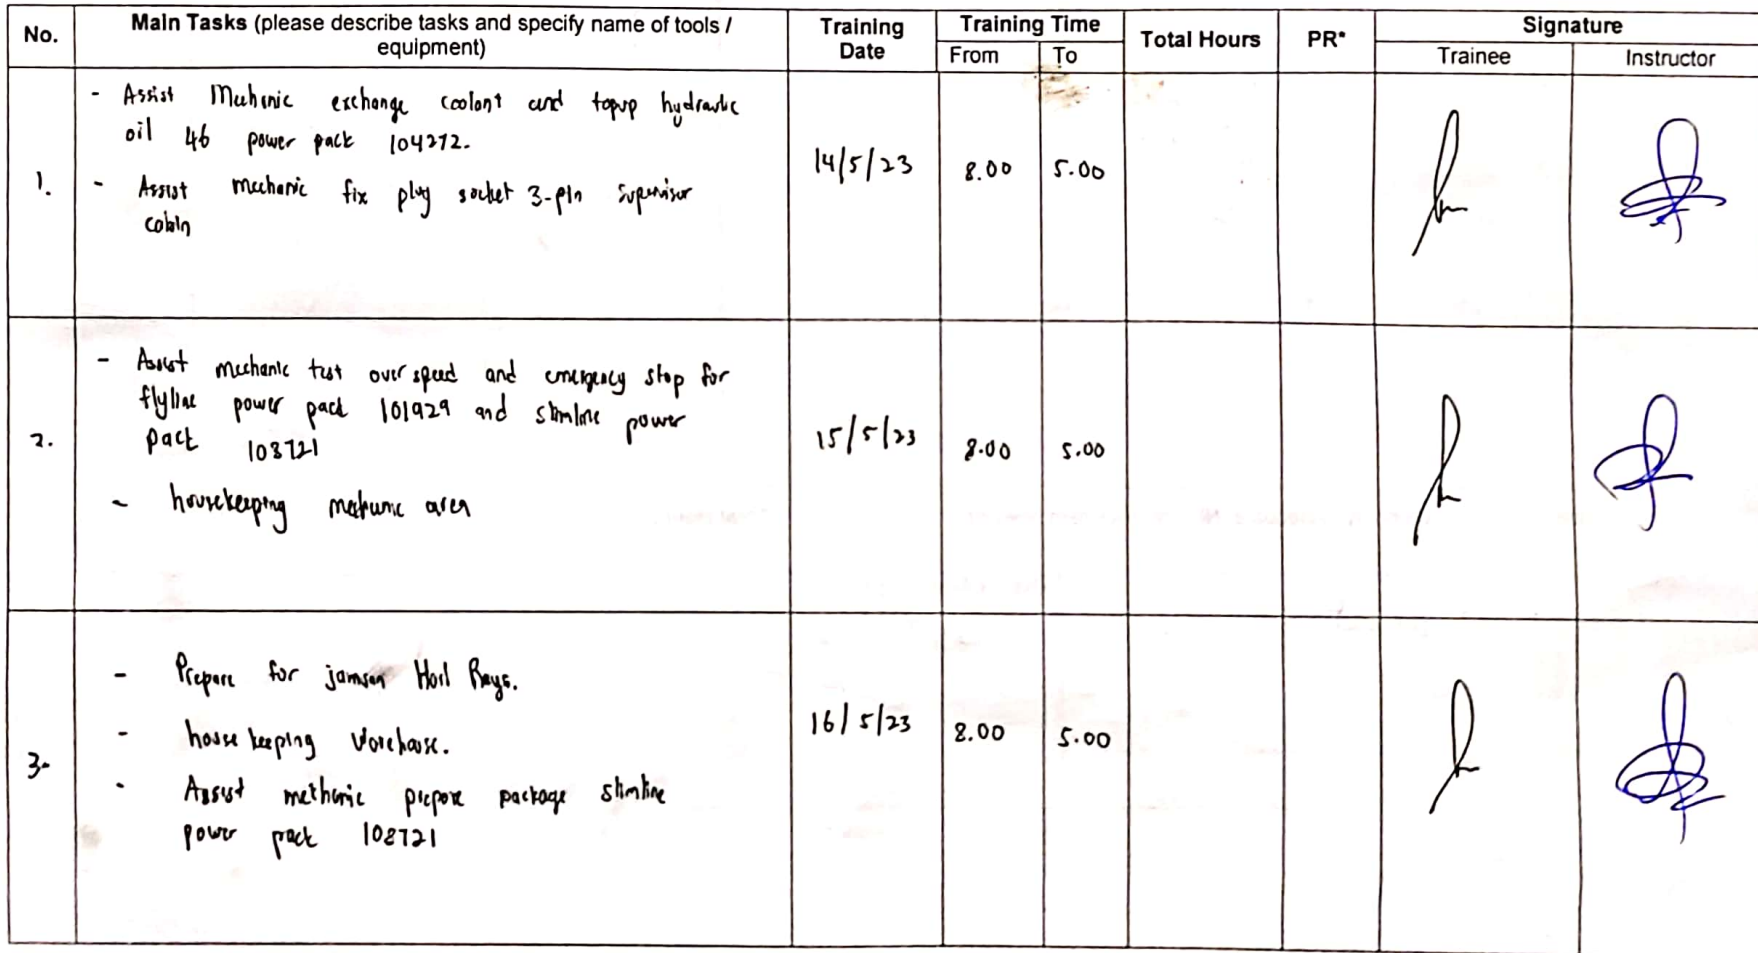 No.
Main Tasks (please describe tasks and specify name of tools /
equipment)
Training
Date
Training Time
From
To
Total Hours
PR*
Signature
Trainee
Instructor
1.
- Assist Mechanic exchange coolant and topup hydraulic
oil 46 power pack 104272.
- Assist mechanic fix plug socket 3-pin supervisor
cabin
14/5/23
8.00
5.00
2.
- Assist mechanic test over speed and emergency stop for
flyline power pack 101929 and slimline power
pack 108721
- housekeeping mechanic area
15/5/23
8.00
5.00
3.
- Prepare for
- house keeping warehouse.
- Assist mechanic prepare package slimline
power pack 108721
16/5/23
8.00
5.00